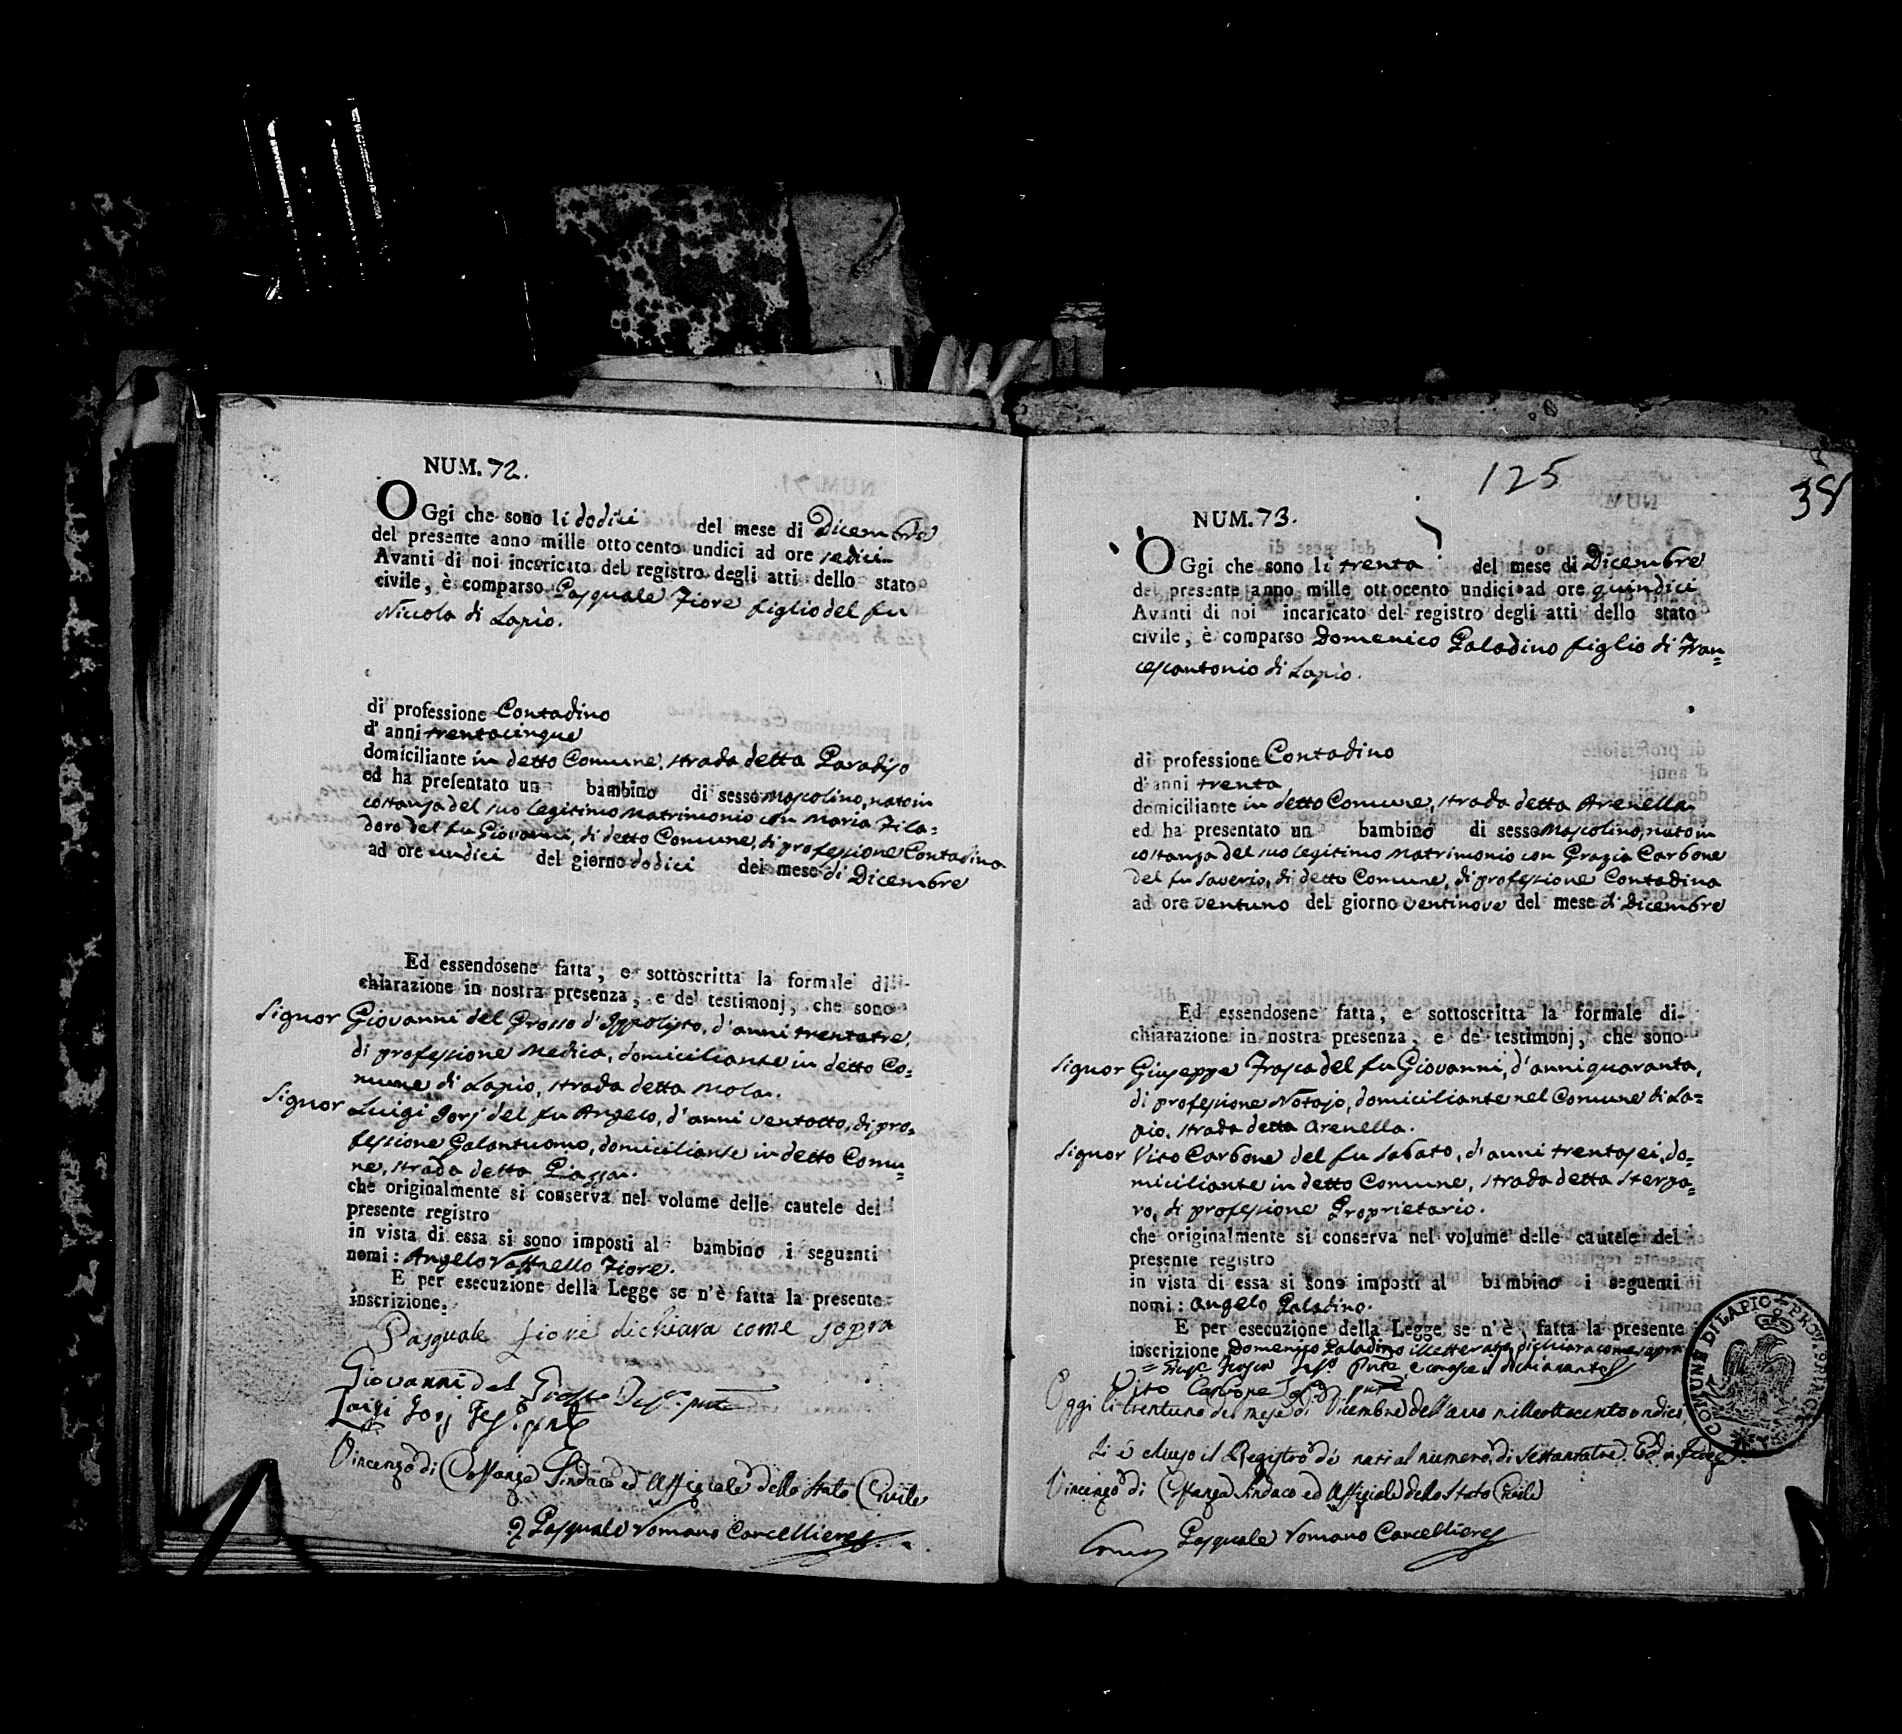 NUM. 72.
OGgi che sono li dodici del mese di Dicembre
del presente anno mille ottocento undici ad ore sedici
Avanti di noi incaricato del registro degli atti dello stato
civile, è comparso Pasquale Fiore figlio del fu
Niccola di Lapio.
di professione Contadino
d'anni trentacinque
domiciliante in detto Comune, strada detta Paradiso
ed ha presentato un bambino di sesso Mascolino, nato in
costanza del suo legitimo Matrimonio con Maria Fila=
doro del fu Giovanni, di detto Comune, di professione Contadina
ad ore undici del giorno dodici del mese di Dicembre
Ed essendosene fatta, e sottoscritta la formale di-
chiarazione in nostra presenza, e de' testimonj, che sono
Signor Giovanni del Grosso d'Ippolisto, d'anni trentatre,
di professione Medico, domiciliante in detto Co=
mune di Lapio, strada detta Mola.
Signor Luigi Jorj del fu Angelo, d'anni ventotto, di pro=
fessione Galantuomo, domiciliante in detto Comu=
ne, strada detta Piazza.
che originalmente si conserva nel volume delle cautele del
presente registro
in vista di essa si sono imposti al bambino i seguenti
nomi: Angello Raffaello Fiore.
E per esecuzione della Legge se n'è fatta la presente
inscrizione.
Pasquale fiore dichiara come sopra
Giovanni del Grosso
Luigi Jorj
Vincenzo di Costanza Sindaco ed Uffiziale dello Stato Civile
Pasquale Romano Cancelliere
125
38
NUM. 73.
OGgi che sono li trenta del mese di Dicembre
del presente anno mille ottocento undici ad ore quindici
Avanti di noi incaricato del registro degli atti dello stato
civile, è comparso Domenico Paladino figlio di Fran=
cescantonio di Lapio.
di professione Contadino
d'anni trenta
domiciliante in detto Comune, strada detta Arenella
ed ha presentato un bambino di sesso Mascolino, nato in
costanza del suo legitimo Matrimonio con Grazia Carbone
del fu Saverio, di detto Comune, di professione Contadina
ad ore ventuno del giorno ventinove del mese di Dicembre
Ed essendosene fatta, e sottoscritta la formale di-
chiarazione in nostra presenza, e de' testimonj, che sono
Signor Giuseppe Frasca del fu Giovanni, d'anni quaranta,
di professione Notajo, domiciliante nel Comune di La=
pio, strada detta Arenella.
Signor Vito Carbone del fu Sabato, d'anni trentasei, do=
miciliante in detto Comune, strada detta Sterpa=
ro, di professione Proprietario.
che originalmente si conserva nel volume delle cautele del
presente registro
in vista di essa si sono imposti al bambino i seguenti
nomi: Angelo Paladino.
E per esecuzione della Legge se n'è fatta la presente
inscrizione Domenico Paladino illetterato dichiara come sopra
Vito Carbone
Oggi li trentuno del mese di Dicembre dell'anno milleottocento undici
si è chiuso il Registro de' nati al numero di settantatre. Ed in fede
Vincenzo di Costanza Sindaco ed Uffiziale dello Stato Civile
Pasquale Romano Cancelliere
COMUNE DI LAPIO